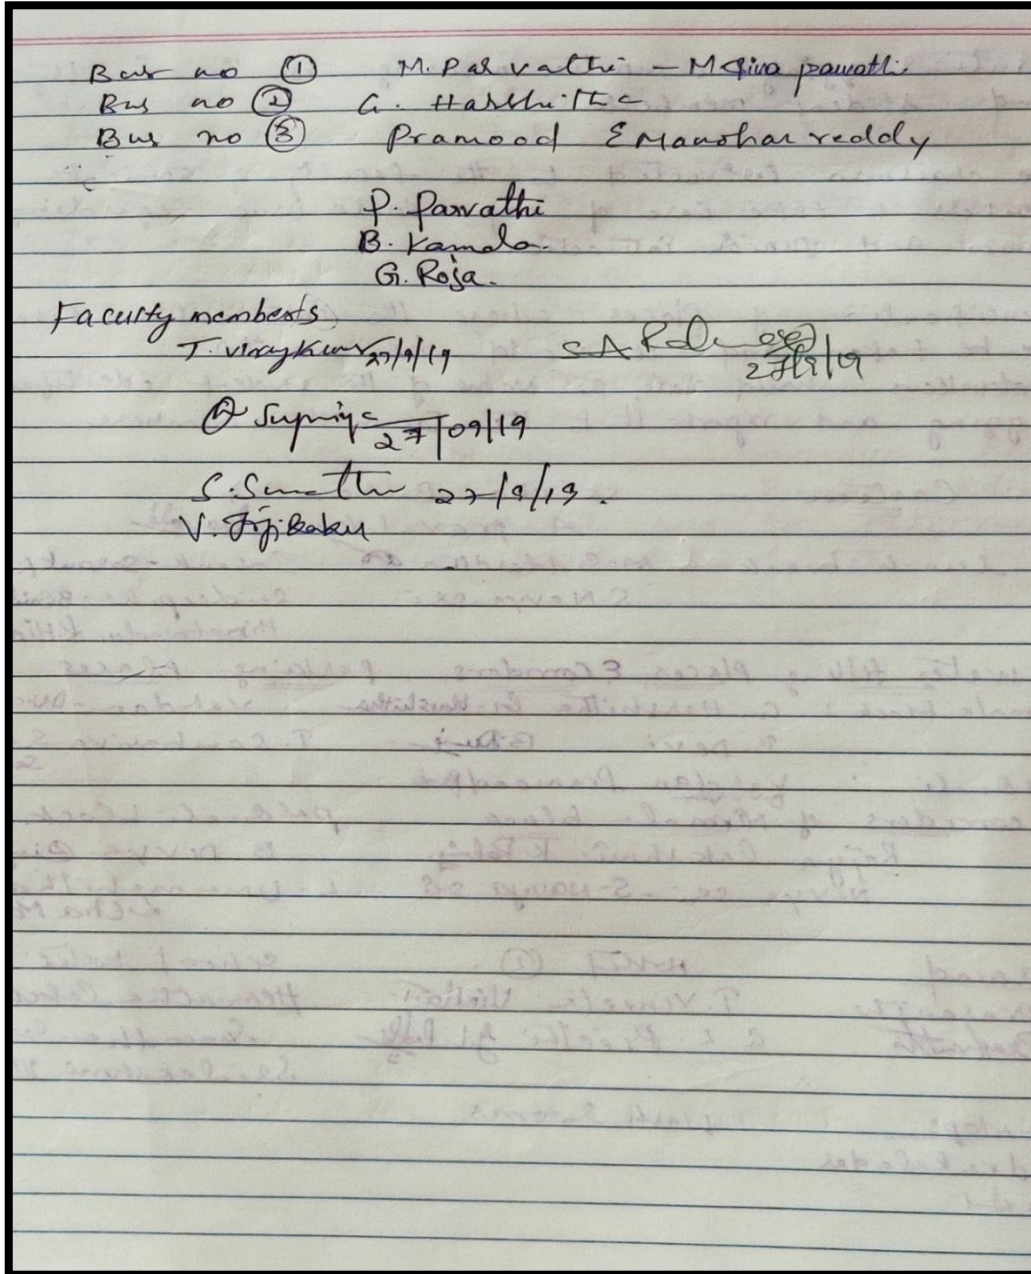 Bus no ① M. Parvathi - M Siva parvathi
Bus no ② G. Harshitha
Bus no ③ Pramood & Manohar reddy
P. Parvathi
B. Kamala.
G. Roja.
Faculty members
T. Vinay Kumar 27/9/19
27/9/19
Supriya 27/09/19
S. Sumathi 27/9/19.
V. Jiji Babu